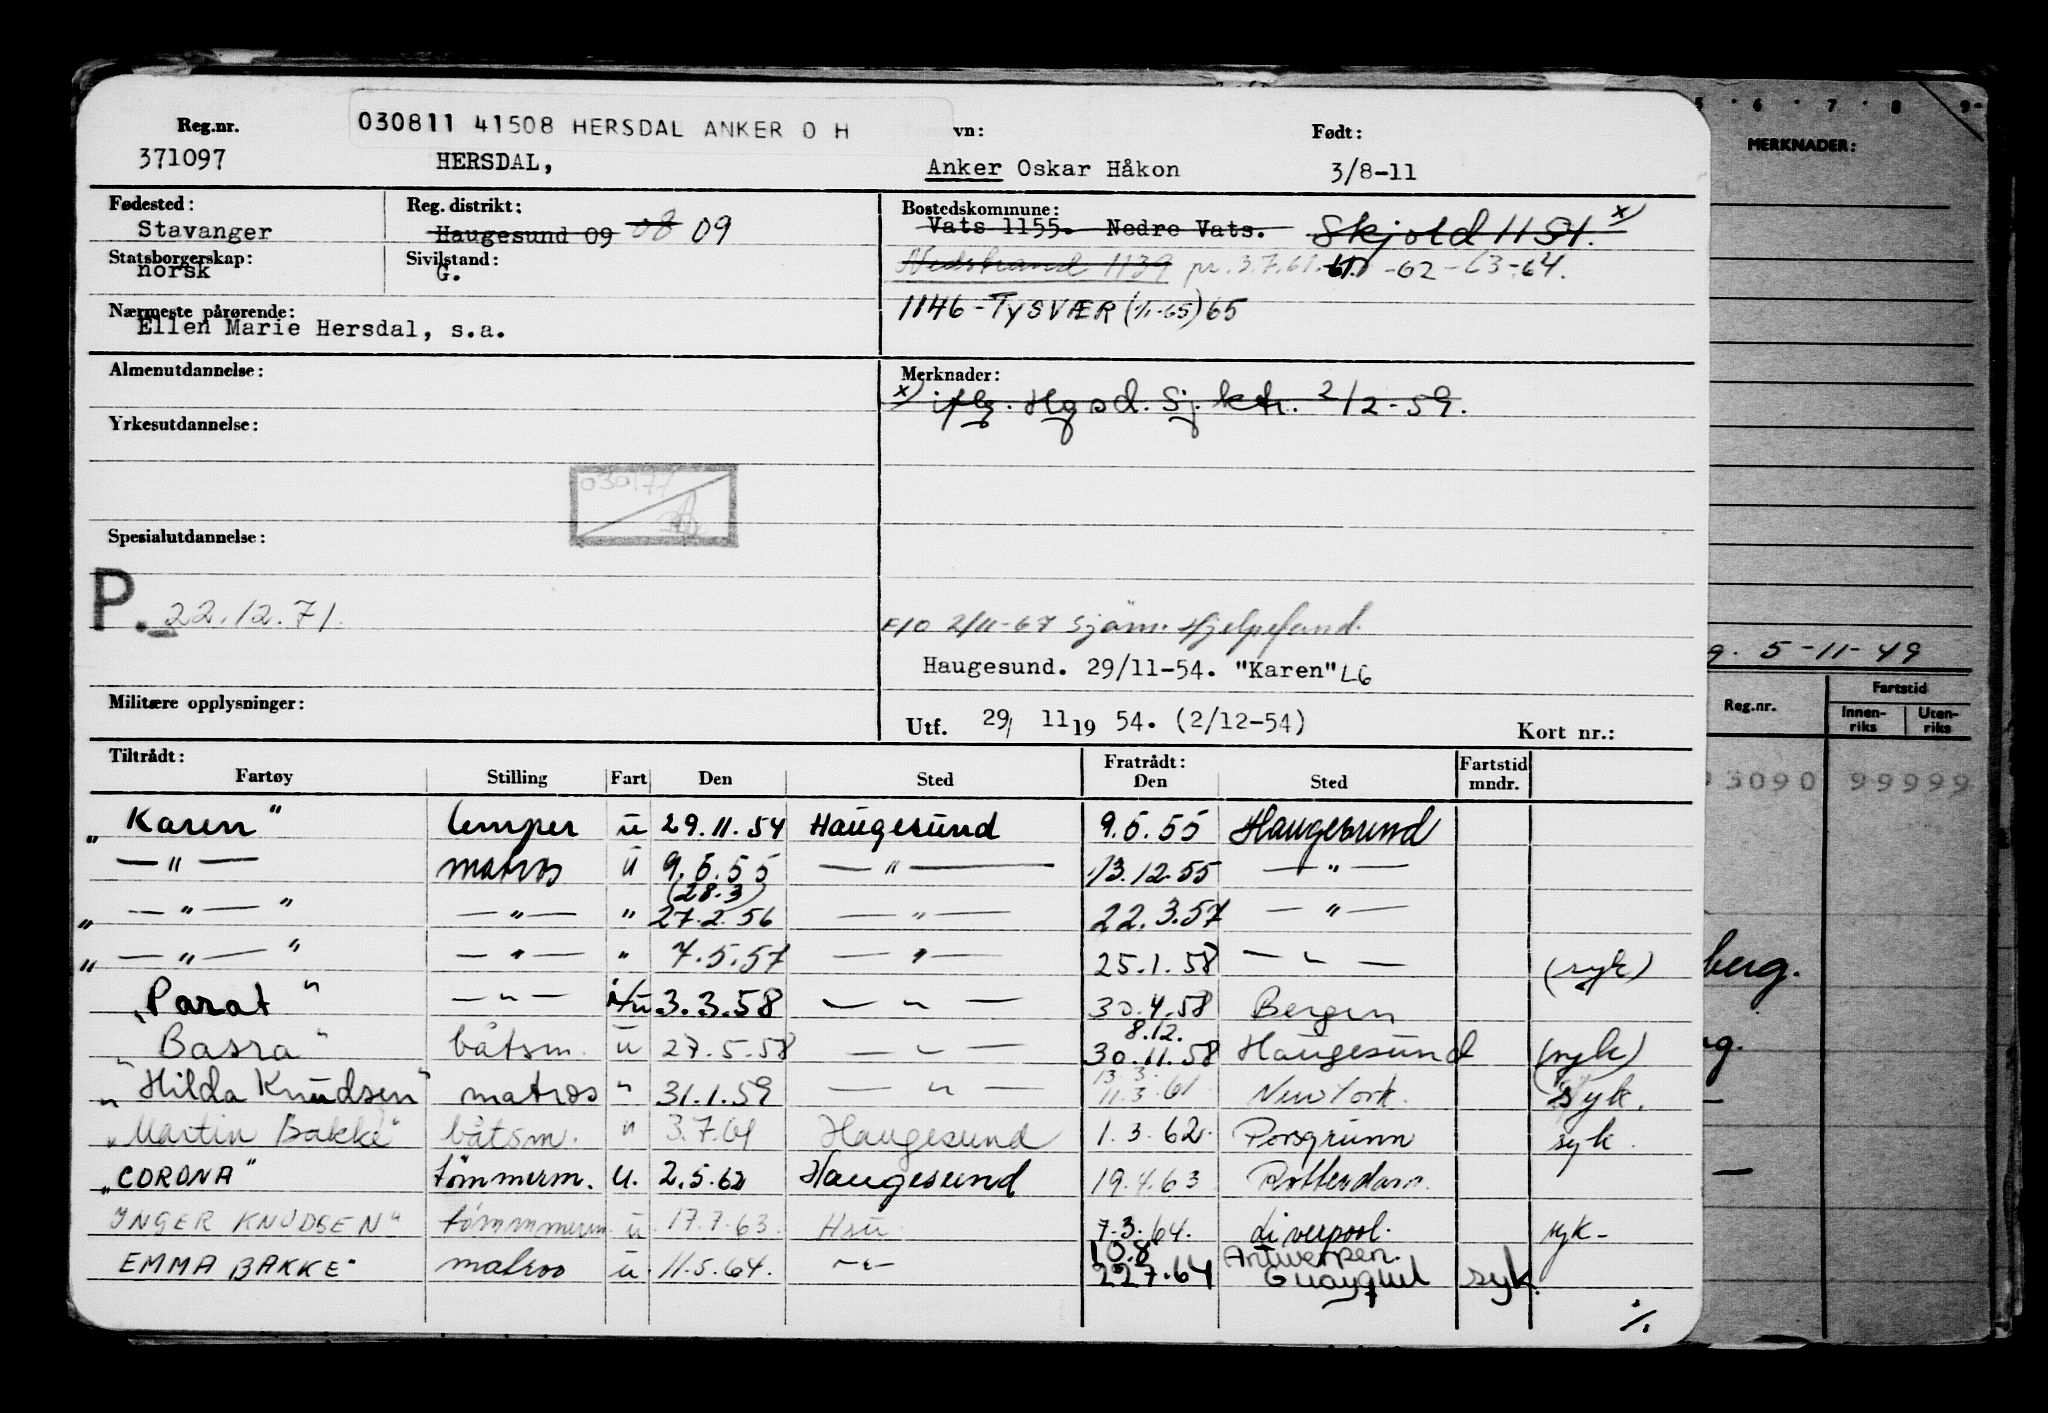 Reg.nr. 030811 41508 HERSDAL ANKER O H vn: Født:
371097 HERSDAL, Anker Oskar Håkon 3/8-11
Fødested: Reg. distrikt: Bostedskommune:
Stavanger Haugesund 09 08 09 Vats 1155. Nedre Vats. Skjold 1154. x)
Statsborgerskap: Sivilstand: Nedstrand 1139 pr. 3.7.61. -62-63-64.
norsk G.
Nærmeste pårørende: 1146-TYSVÆR (1/1-65) 65
Ellen Marie Hersdal, s.a.
Almenutdannelse: Merknader:
x) iflg. Hgsd. Sj. ktr. 2/2-59.
Yrkesutdannelse:
Spesialutdannelse:
P. 22.12.71.
F/O 2/11-67 Sjöm. Hjelpefond.
Haugesund. 29/11-54. "Karen" LG
Militære opplysninger:
Utf. 29/ 11 19 54. (2/12-54) Kort nr.:
Tiltrådt: Fratrådt: Fartstid
Fartøy Stilling Fart Den Sted Den Sted mndr.
"Karen" lemper u 29.11.54 Haugesund 9.5.55 Haugesund
—"— matros u 9.5.55 —"— 13.12.55 —"—
(28.3)
"—"—" —"— " 27.2.56 —"— 22.3.57 —"—
"—"—" —"— " 7.5.57 —"— 25.1.58 —"— (syk)
"Parat" —"— i/u 3.3.58 —"— 30.4.58 Bergen
8.12.
"Basra" båtsm. u 27.5.58 —"— 30.11.58 Haugesund (syk)
13.3.
"Hilda Knudsen" matros " 31.1.59 —"— 11.3.61 New York. syk.
"Martin Bakke" båtsm. " 3.7.61 Haugesund 1.3.62. Porsgrunn syk.
"CORONA" tömmerm. u. 2.5.62 Haugesund 19.4.63 Rotterdam.
INGER KNUDSEN" tömmerm u 17.7.63. Hsu 7.3.64. Liverpool. syk-
10.8 Antwerpen.
EMMA BAKKE" matros u 11.5.64. —"— 22.7.64 Guayquil syk.
./.
5 · 6 · 7 · 8 · 9
MERKNADER:
g. 5-11-49
Reg.nr. Fartstid
Innen-riks Uten-riks
3090 99999
berg.